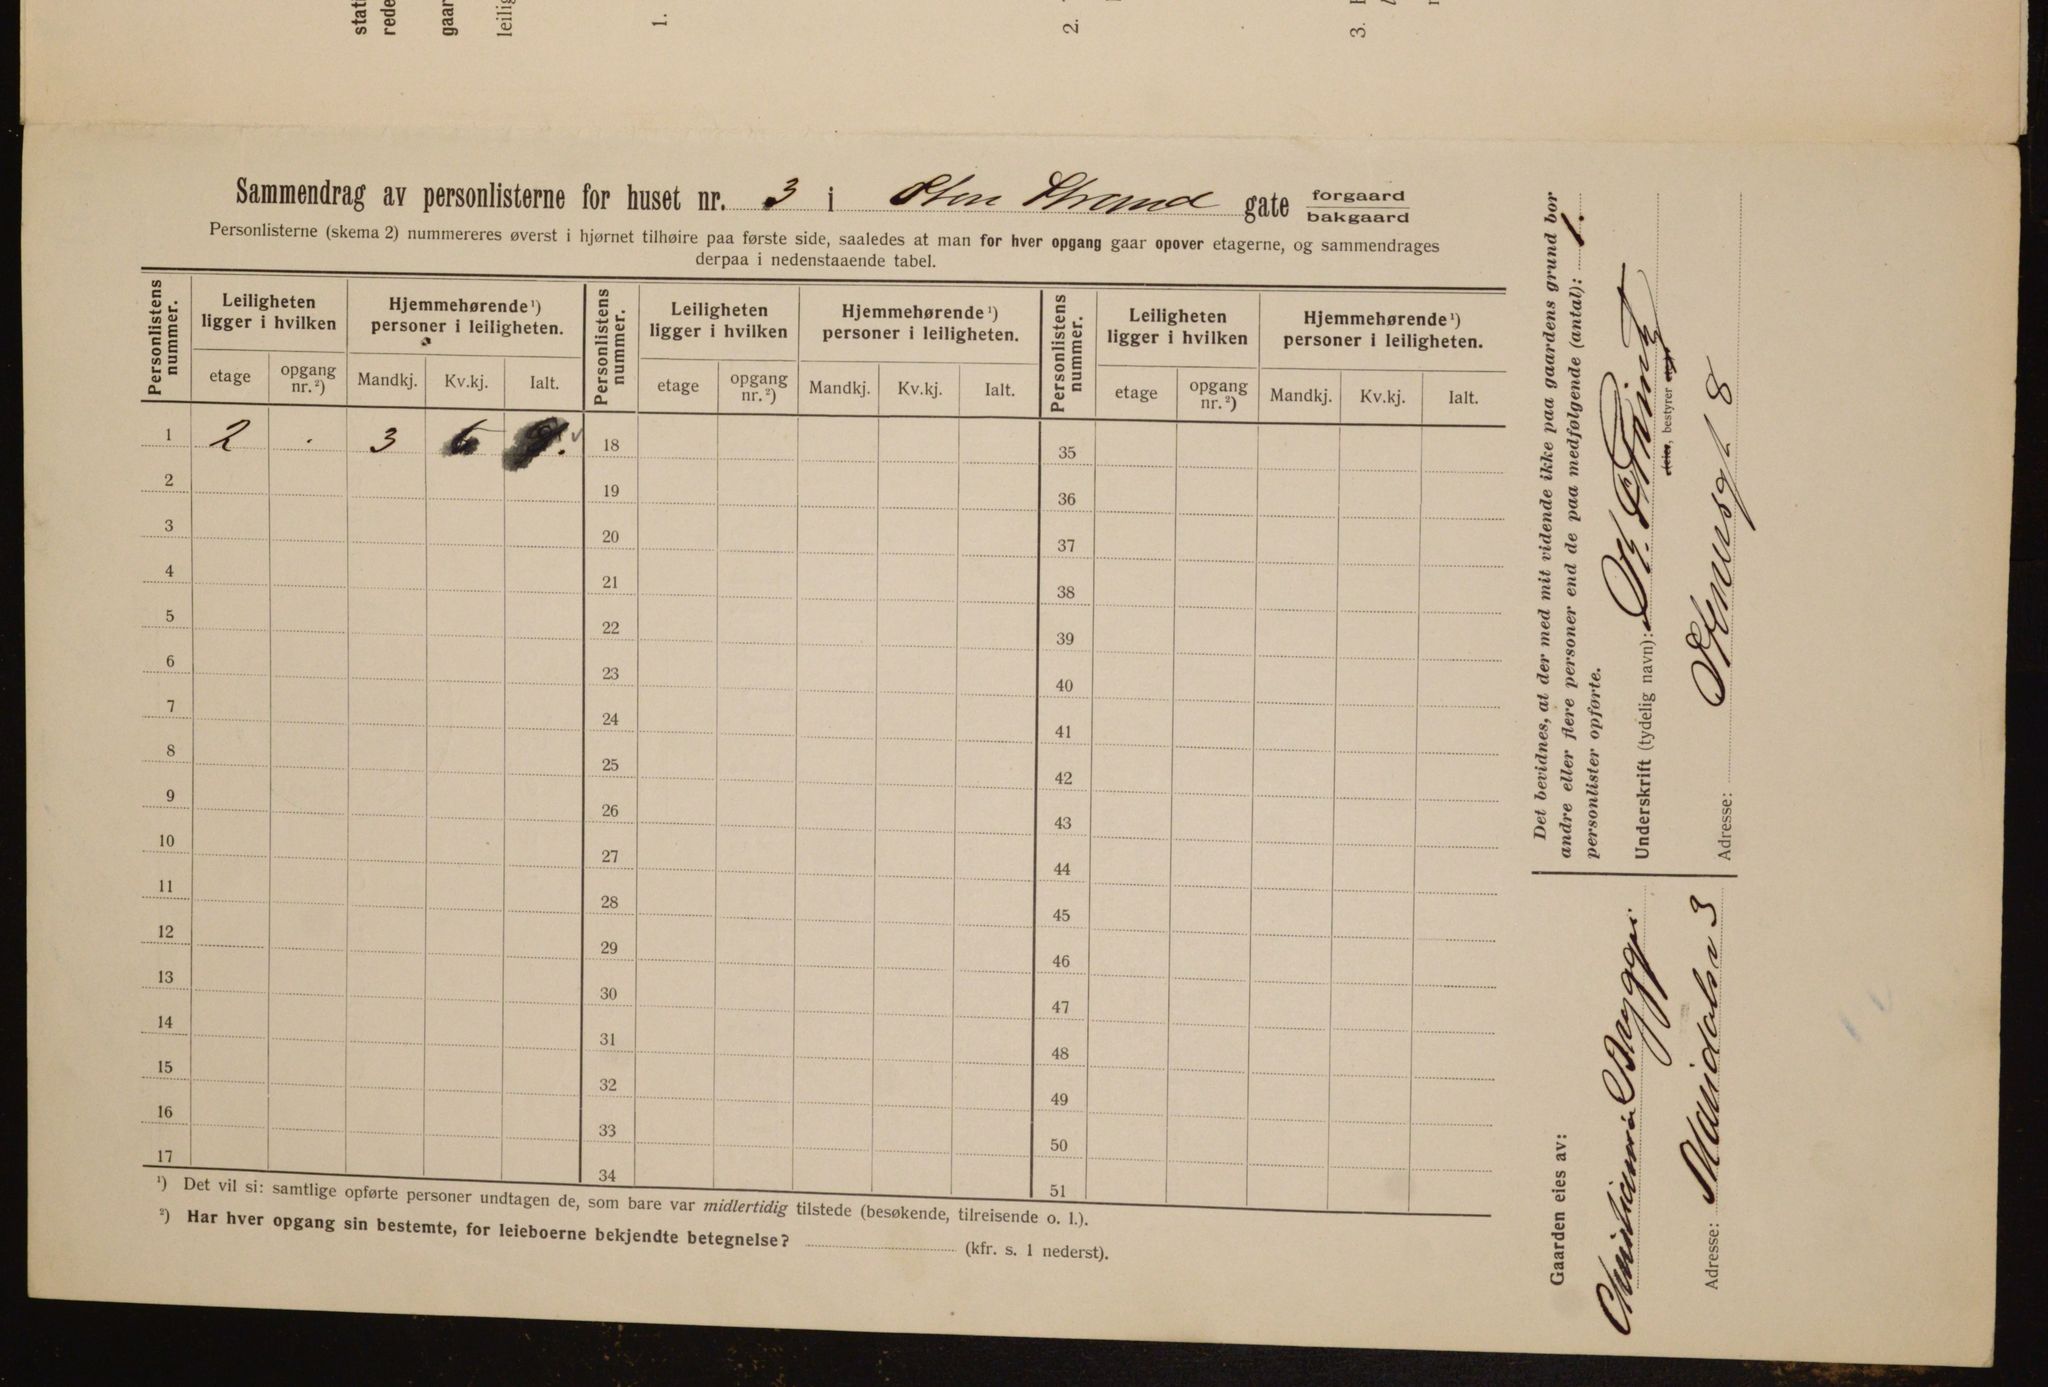 stati
rede
gaar
leilig
1.
2.
3.
Sammendrag av personlisterne for huset nr. 3 i Østre Strand gate forgaard
bakgaard
Personlisterne (skema 2) nummereres øverst i hjørnet tilhøire paa første side, saaledes at man for hver opgang gaar opover etagerne, og sammendrages
derpaa i nedenstaaende tabel.
Personlistens nummer. Leiligheten ligger i hvilken Hjemmehørende¹) personer i leiligheten. Personlistens nummer. Leiligheten ligger i hvilken Hjemmehørende¹) personer i leiligheten. Personlistens nummer. Leiligheten ligger i hvilken Hjemmehørende¹) personer i leiligheten.
etage opgang nr.²) Mandkj. Kv.kj. Ialt. etage opgang nr.²) Mandkj. Kv.kj. Ialt. etage opgang nr.²) Mandkj. Kv.kj. Ialt.
1 2 . 3 6 9. 18 35
2 19 36
3 20 37
4 21 38
5 22 39
6 23 40
7 24 41
8 25 42
9 26 43
10 27 44
11 28 45
12 29 46
13 30 47
14 31 48
15 32 49
16 33 50
17 34 51
¹) Det vil si: samtlige opførte personer undtagen de, som bare var midlertidig tilstede (besøkende, tilreisende o. l.).
²) Har hver opgang sin bestemte, for leieboerne bekjendte betegnelse? (kfr. s. 1 nederst).
Det bevidnes, at der med mit vidende ikke paa gaardens grund bor
andre eller flere personer end de paa medfølgende (antal): 1.
personlister opførte.
Underskrift (tydelig navn):
eier, bestyrer
Adresse: 8
Gaarden eies av:
Christiania Bryggeri
Adresse: Maridalsv 3